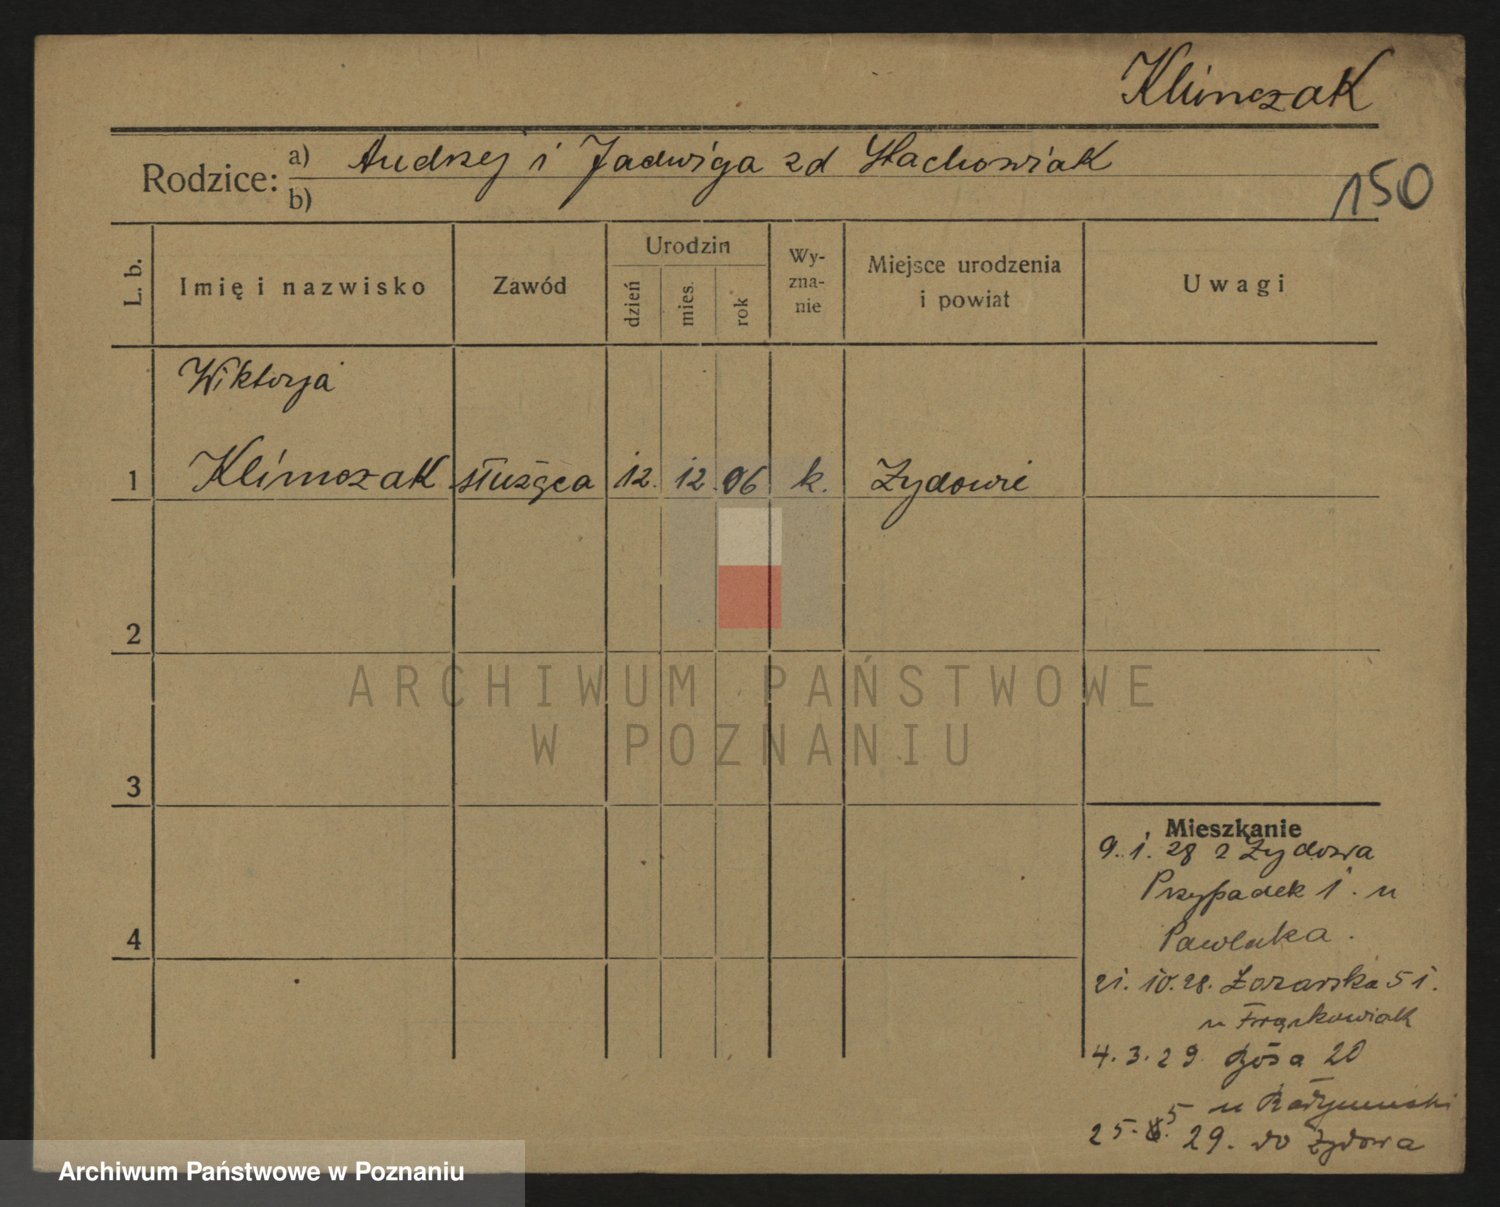 Klimczak
Rodzice: a) Andrzej i Jadwiga zd Stachowiak
b)
150
L. b.
Imię i nazwisko
Zawód
Urodzin
dzień
mies.
rok
Wy-
zna-
nie
Miejsce urodzenia
i powiat
Uwagi
Wiktorja
1 Klimczak służąca 12. 12. 06 k. Żydowie
2
ARCHIWUM PAŃSTWOWE
W POZNANIU
3
Mieszkanie
9. 1. 28 z Żydowa
Przypadek 1. u
Pawlaka.
4
21. 10. 28. 51.
u Frąckowiak
4. 3. 29 20
u
25. 5. 29. do Żydowa
Archiwum Państwowe w Poznaniu